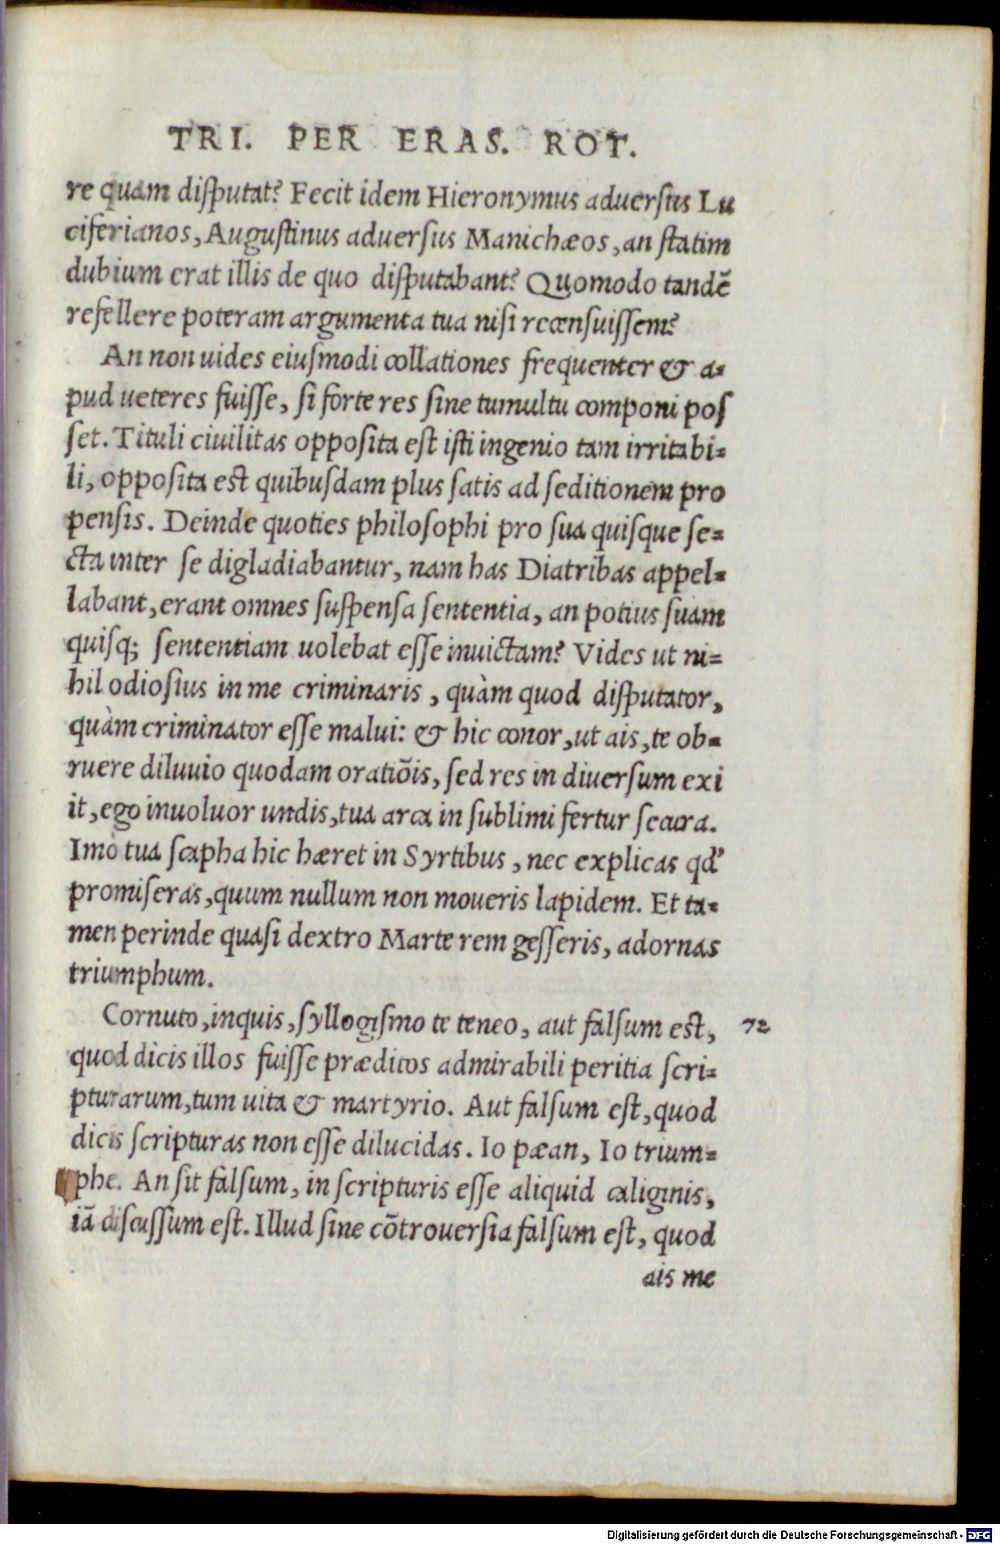 TRI. PER ERAS. ROT.
re quam disputat? Fecit idem Hieronymus aduersus Lu
ciferianos, Augustinus aduersus Manichæos, an statim
dubium erat illis de quo disputabant? Quomodo tandē
refellere poteram argumenta tua nisi recensuissem?
An non uides eiusmodi collationes frequenter & a-
pud ueteres fuisse, si forte res sine tumultu componi pos
set. Tituli ciuilitas opposita est isti ingenio tam irritabi-
li, opposita est quibusdam plus satis ad seditionem pro
pensis. Deinde quoties philosophi pro sua quisque se-
cta inter se digladiabantur, nam has Diatribas appel-
labant, erant omnes suspensa sententia, an potius suam
quisq; sententiam uolebat esse inuictam? Vides ut ni-
hil odiosius in me criminaris, quàm quod disputator,
quàm criminator esse malui: & hic conor, ut ais, te ob-
ruere diluuio quodam oratiōis, sed res in diuersum exi
it, ego inuoluor undis, tua arca in sublimi fertur secura.
Imò tua scapha hic hæret in Syrtibus, nec explicas qd'
promiseras, quum nullum non moueris lapidem. Et ta-
men perinde quasi dextro Marte rem gesseris, adornas
triumphum.
Cornuto, inquis, syllogismo te teneo, aut falsum est, 72
quod dicis illos fuisse præditos admirabili peritia scri-
pturarum, tum uita & martyrio. Aut falsum est, quod
dicis scripturas non esse dilucidas. Io pæan, Io trium-
phe. An sit falsum, in scripturis esse aliquid caliginis,
iā discussum est. Illud sine cōtrouersia falsum est, quod
ais me
Digitalisierung gefördert durch die Deutsche Forschungsgemeinschaft - DFG